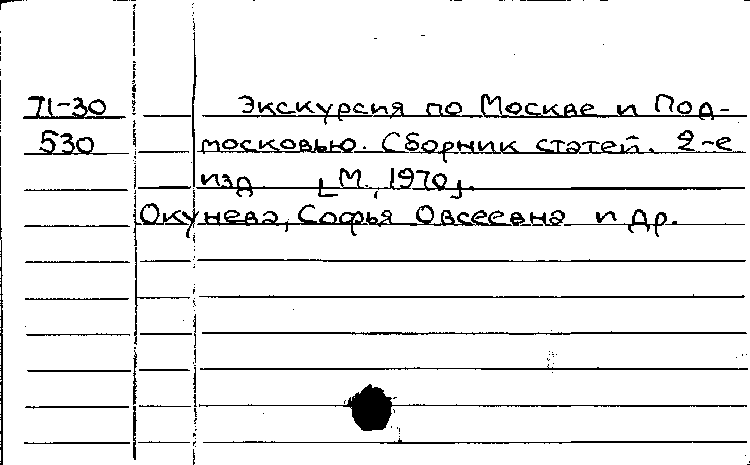 71-30 Экскурсия по Москве и Под-
530 московью. Сборник статей. 2-е
изд [М., 1970].
Окунева, Софья Овсеевна и др.